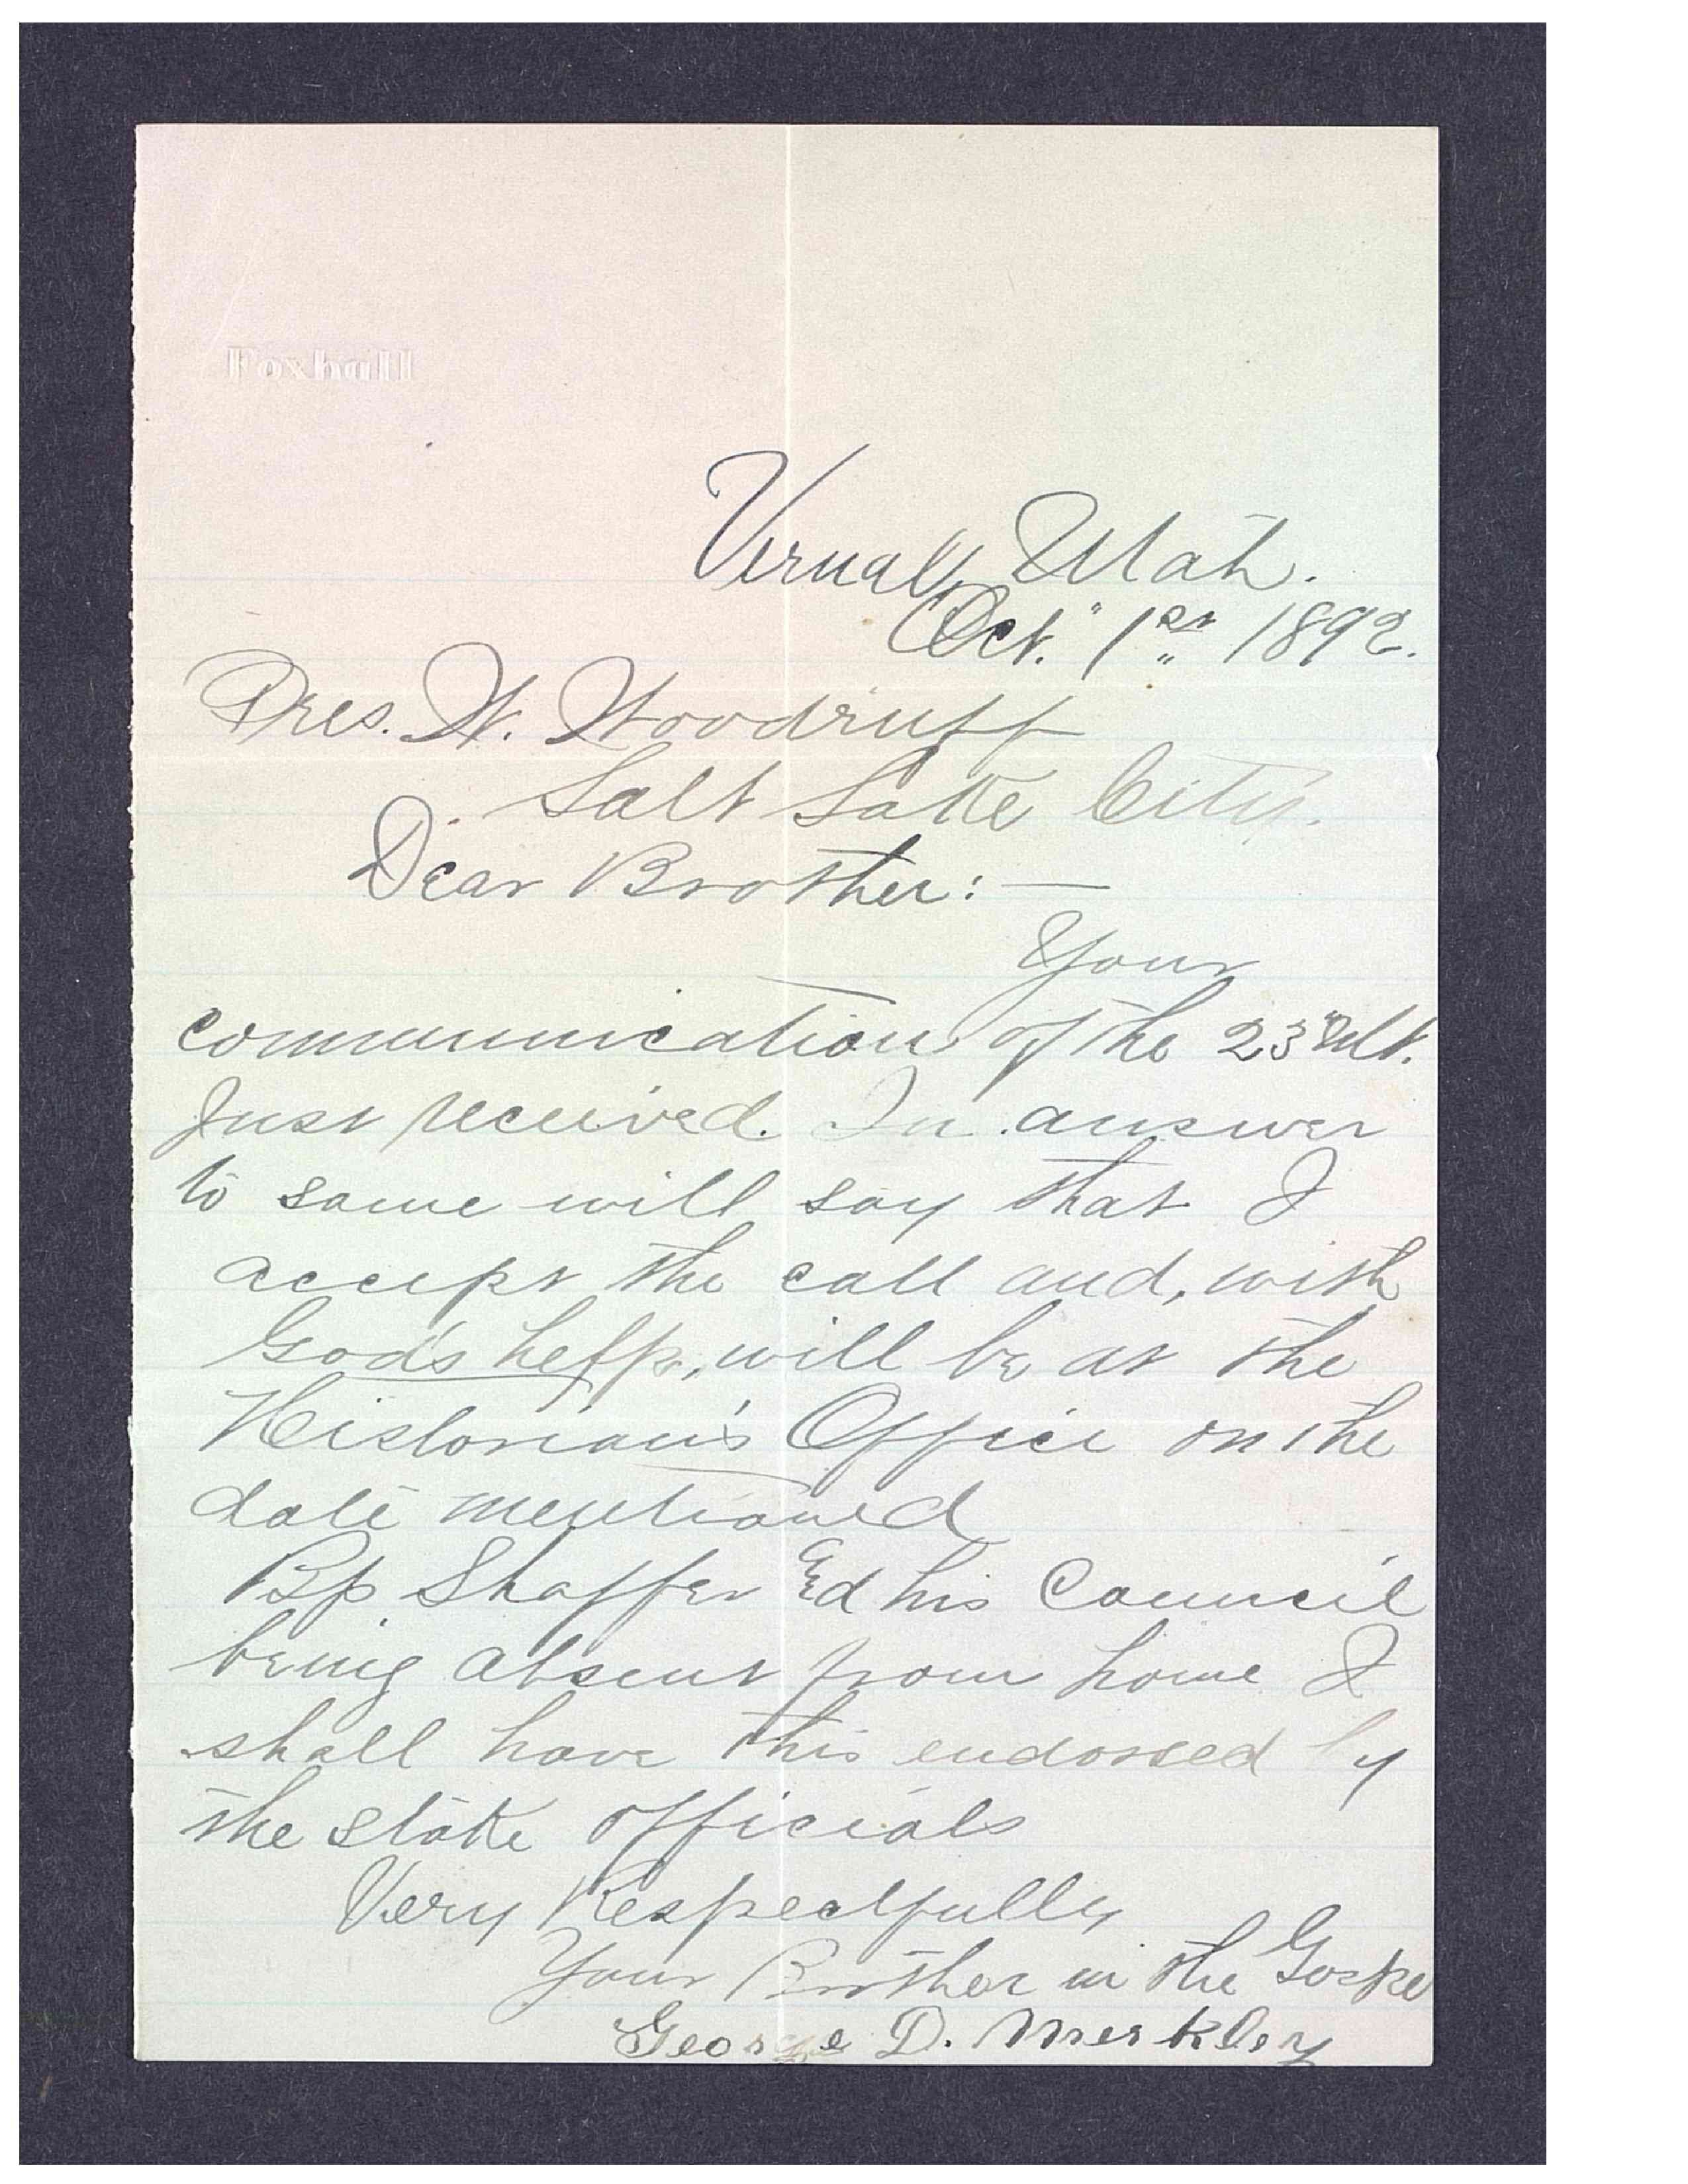 Foxhall
Vernal, Utah.
Oct. 1st 1892.
Pres. W. Woodruff
Salt Lake City.
Dear Brother:—
Your
communication of the 23" Ult.
Just received. In answer
to same will say that I
accept the call and, with
God's help, will be at the
Historian's Office on the
date mentioned
Bp Shaffer & his Council
being absent from home I
shall have this endorsed by
the stake officials
Very Respectfully
Your Brother in the Gospel
George D. Merkley